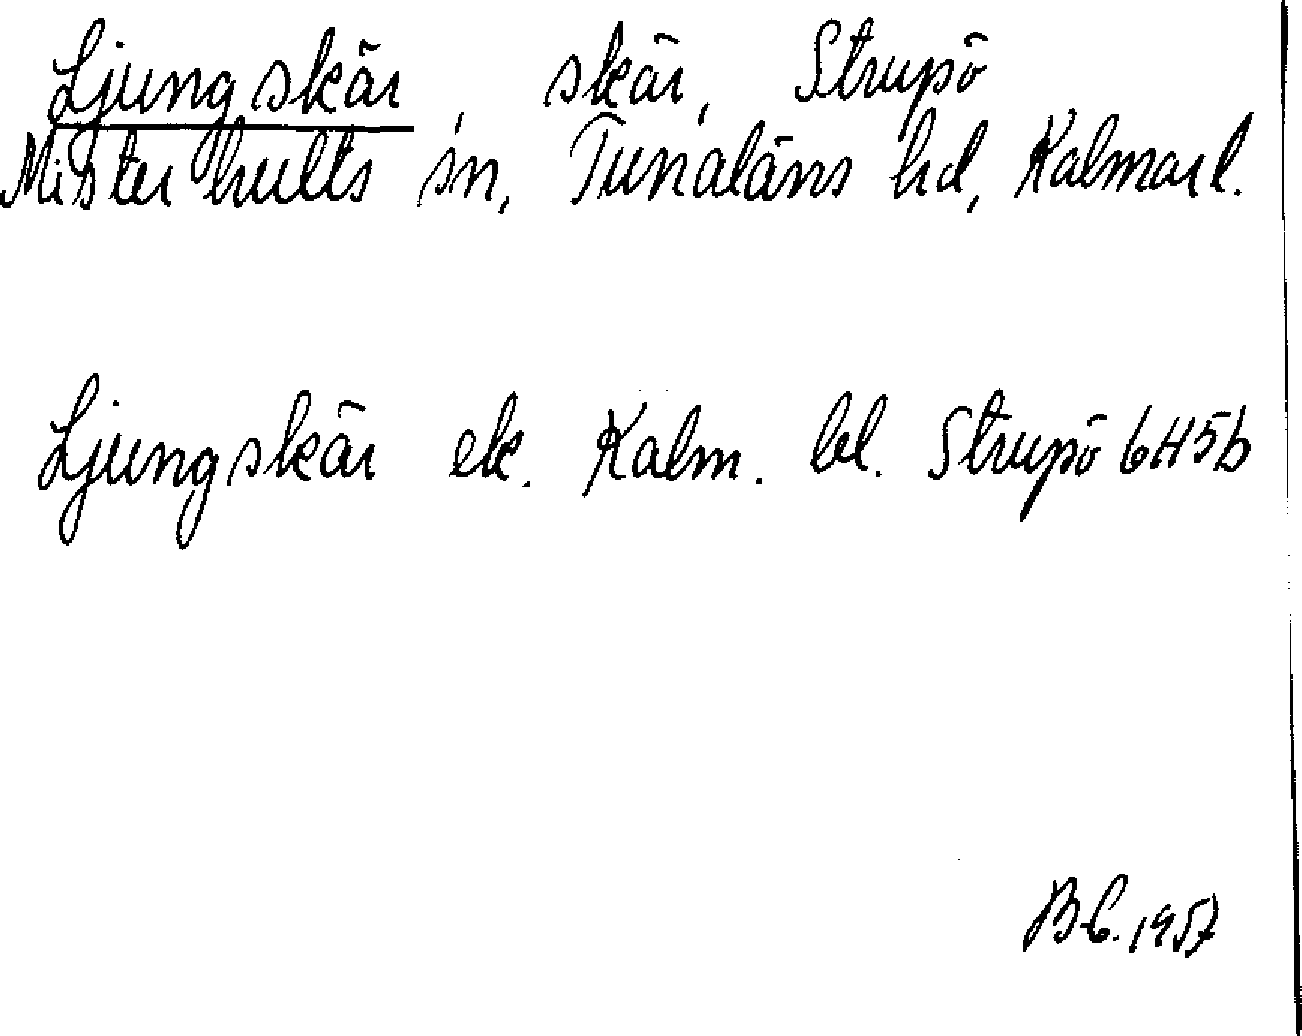 Ljungskär, skär, Strupö
Misterhults sn, Tunaläns hd, Kalmar l.
Ljungskär ek. Kalm. bl. Strupö 6H5b
B-C. 1957